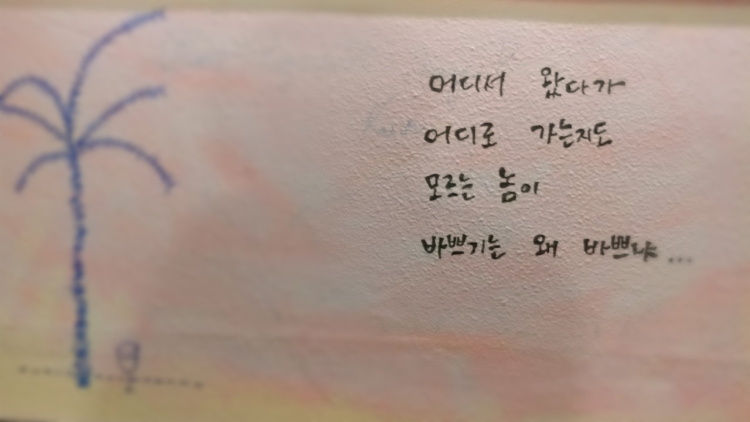 어디서 왔다가
어디로 가는지도
모르는 놈이
바쁘기는 왜 바쁘냐...